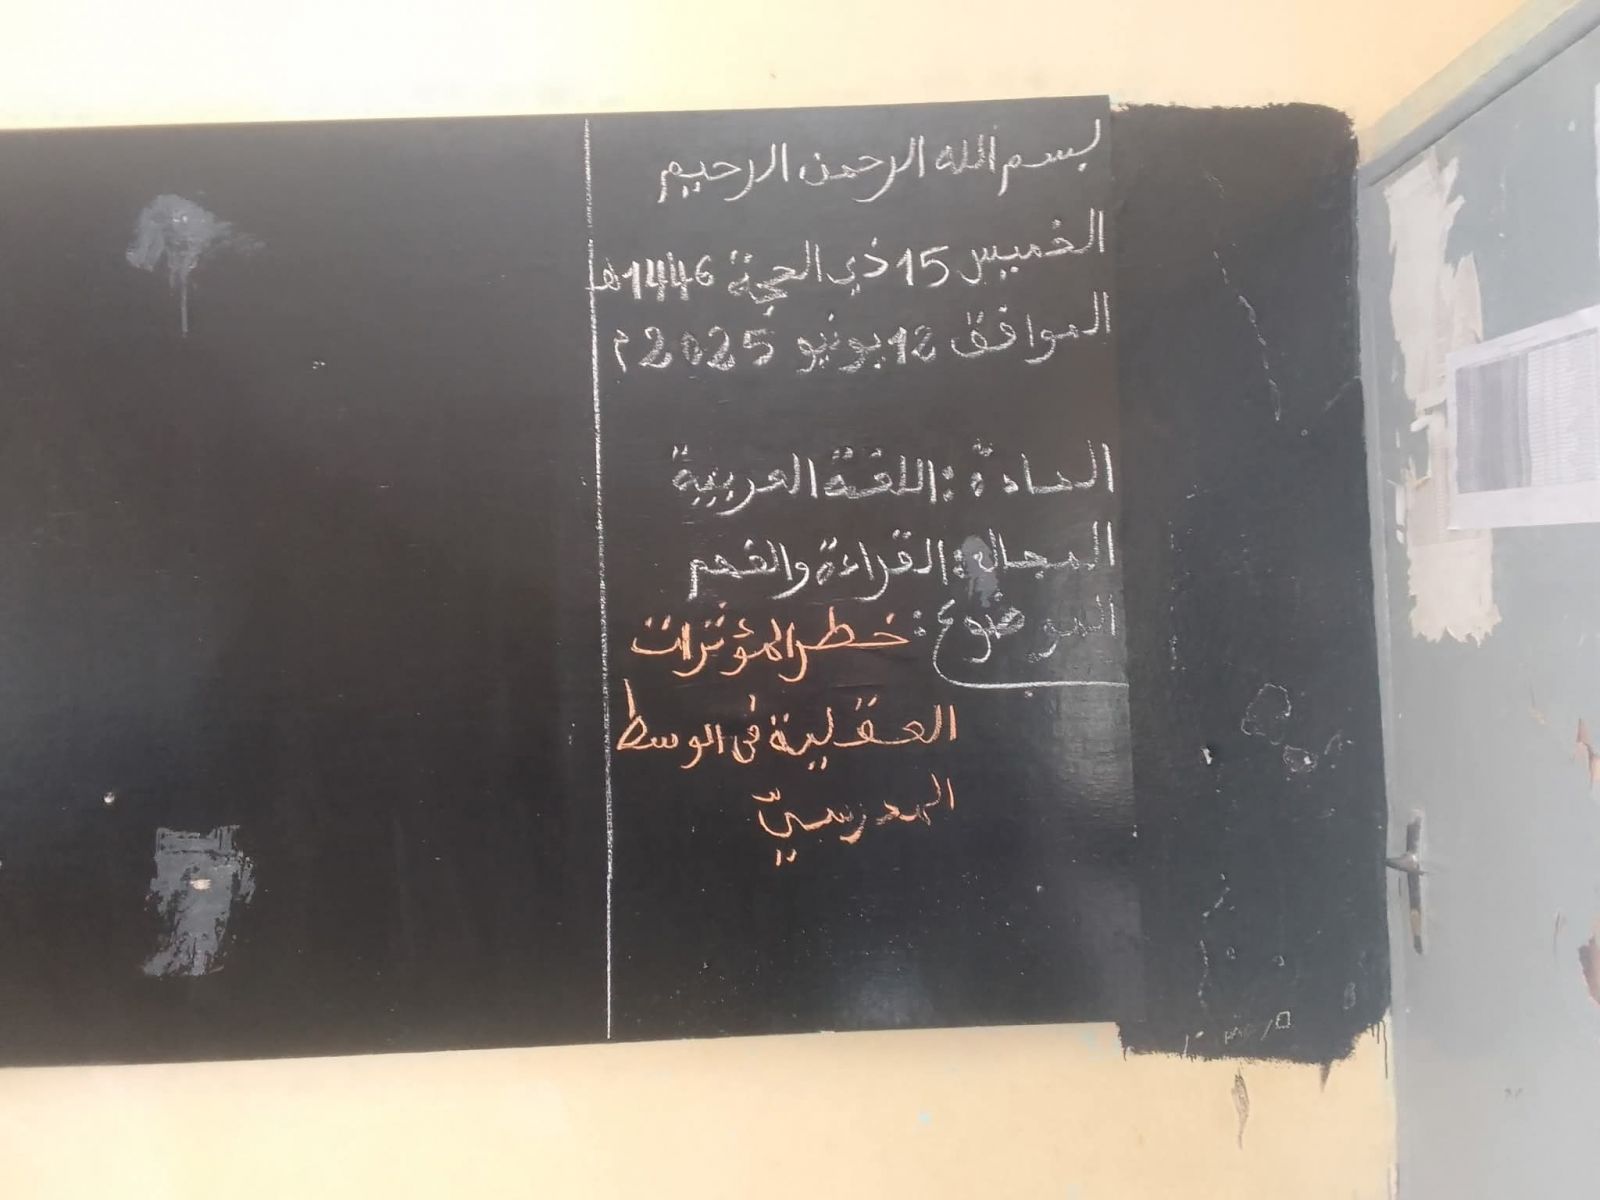 بسم الله الرحمن الرحيم
الخميس 15 ذي الحجة 1446هـ
الموافق 12 يونيو 2025م
المادة: اللغة العربية
المجال: القراءة والفهم
الموضوع: خطر المؤثرات
العقلية في الوسط
المدرسيّ